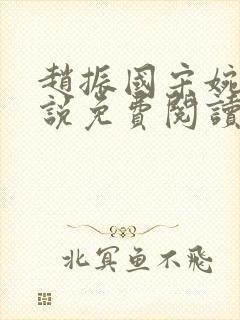 趙振國宋婉
說免費閱讀
北冥鱼不飛